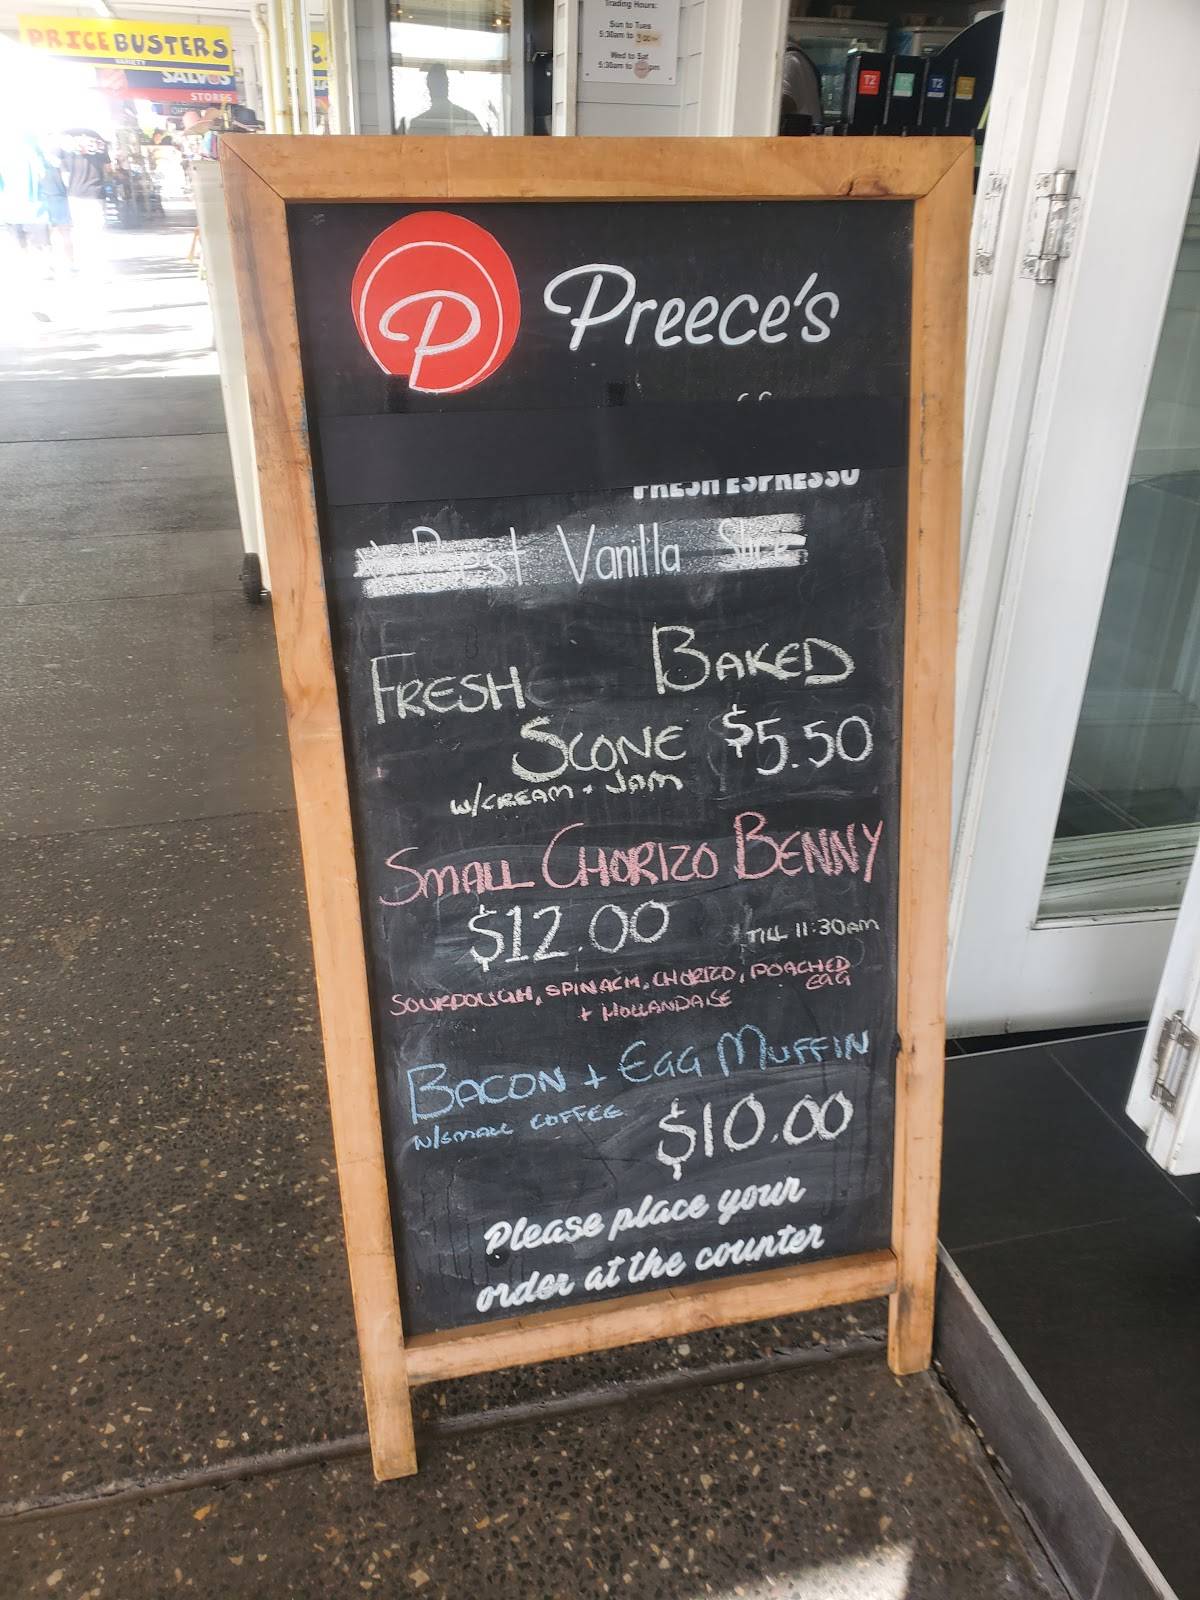 PRICE BUSTERS
VARIETY
SALVOS
STORES
Trading Hours:
Sun to Tues
5:30am to
Wed to Sat
5:30am to pm
T2
T2
T2
P
Preece's
FRESH ESPRESSO
Best Vanilla Slice
FRESH BAKED
SCONE $5.50
W/CREAM + JAM
SMALL CHORIZO BENNY
$12.00
TILL 11:30AM
SOURDOUGH, SPINACH, CHORIZO, POACHED
EGG
+ HOLLANDAISE
BACON + EGG MUFFIN
W/SMALL COFFEE
$10.00
Please place your
order at the counter